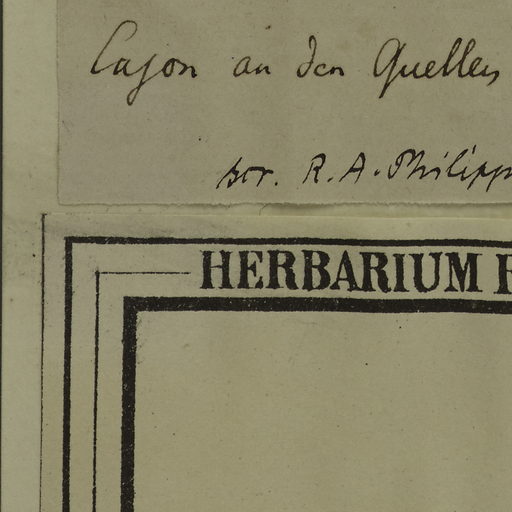 Cajon an den Quellen
scr. R. A. Philippi
HERBARIUM